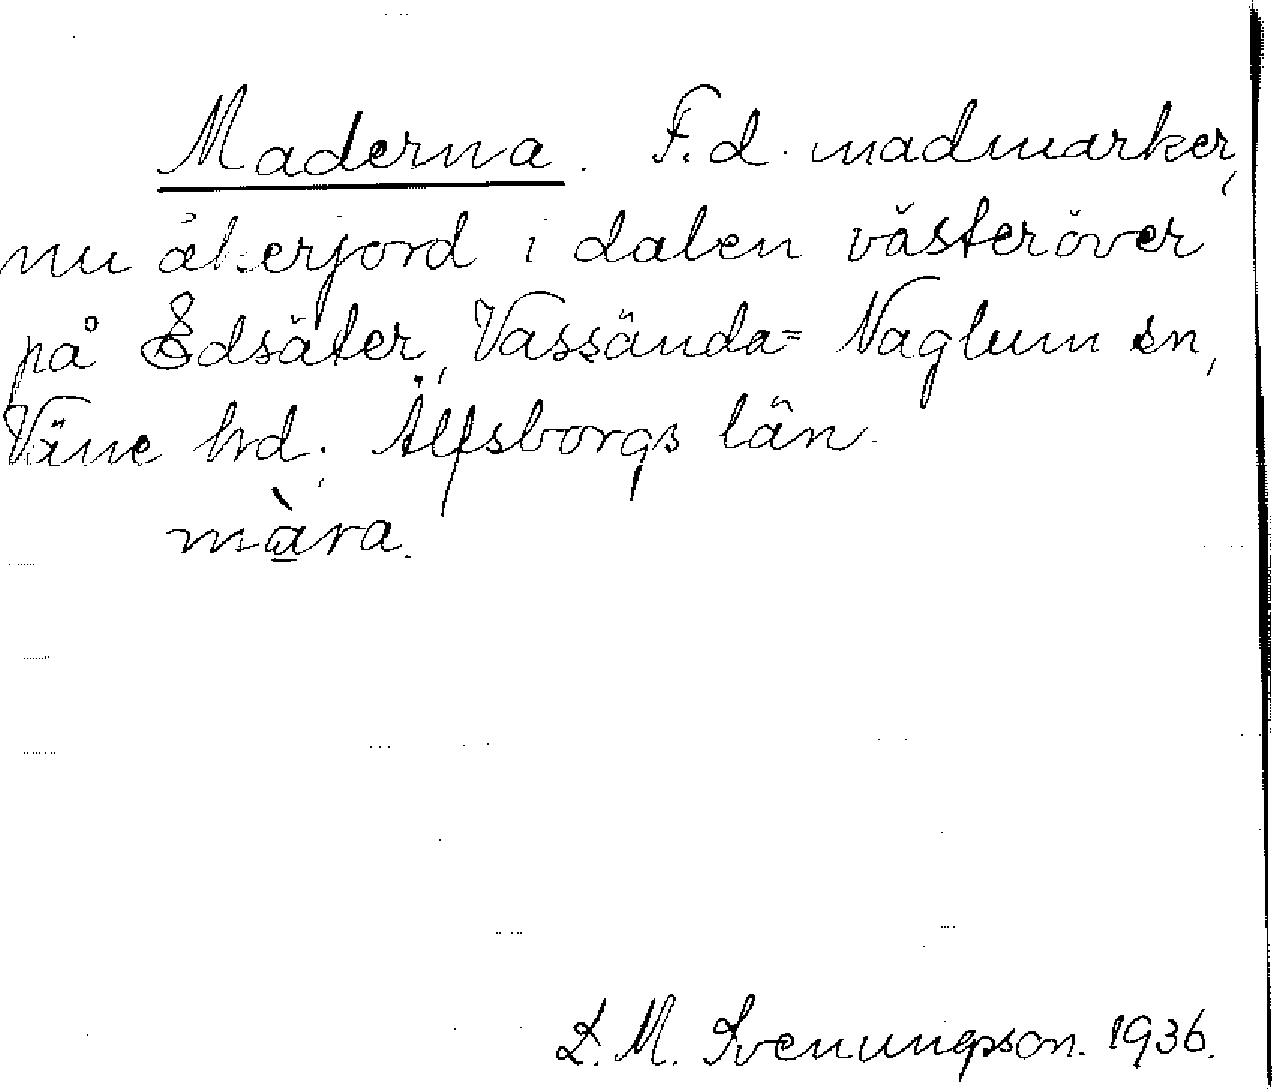 Maderna. F.d. madmarker,
nu åkerjord i dalen västeröver
på Edsäter, Vassända= Naglum sn,
Väne hd. Älfsborgs län.
màra.
D. M. Svenungsson. 1936.